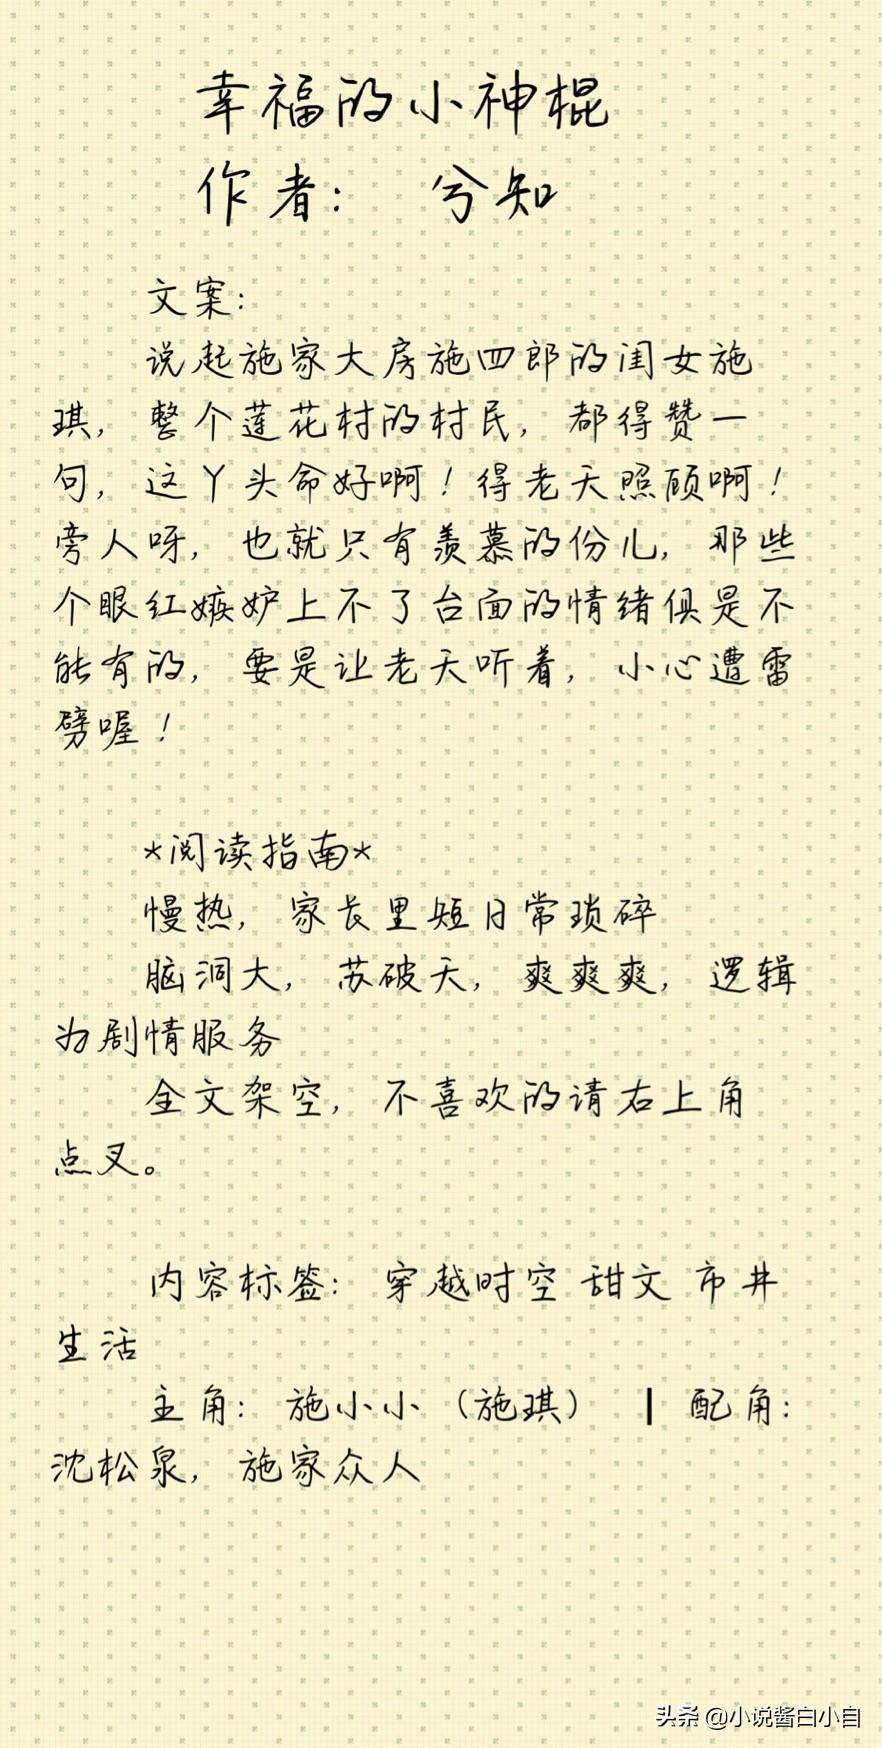 幸福的小神棍
作者： 兮知
文案：
说起施家大房施四郎的闺女施
琪，整个莲花村的村民，都得赞一
句，这丫头命好啊！得老天照顾啊！
旁人呀，也就只有羡慕的份儿，那些
个眼红嫉妒上不了台面的情绪俱是不
能有的，要是让老天听着，小心遭雷
劈喔！
*阅读指南*
慢热，家长里短日常琐碎
脑洞大，苏破天，爽爽爽，逻辑
为剧情服务
全文架空，不喜欢的请右上角
点叉。
内容标签： 穿越时空 甜文 市井
生活
主角：施小小（施琪） ┃ 配角：
沈松泉，施家众人
头条 @小说酱白小自